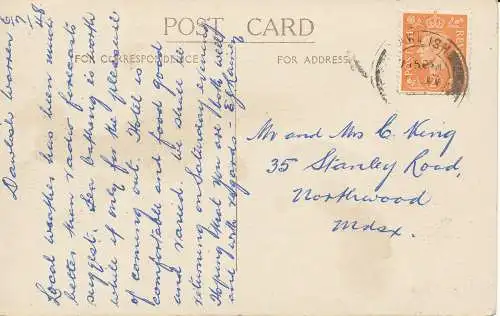 POST CARD
FOR CORRESPONDENCE
FOR ADDRESS
Dawlish Warren 6/7/48
Local weather has been much
better than radio forecasts
suggest. Sea bathing is worth
while if only for the pleasure
of coming out. Hotel is
comfortable and food good
and varied. We shall be
returning on Saturday evening
Hoping that you are both well
and with regards -
Mr and Mrs C. King
35 Stanley Road,
Northwood
Mdsx.